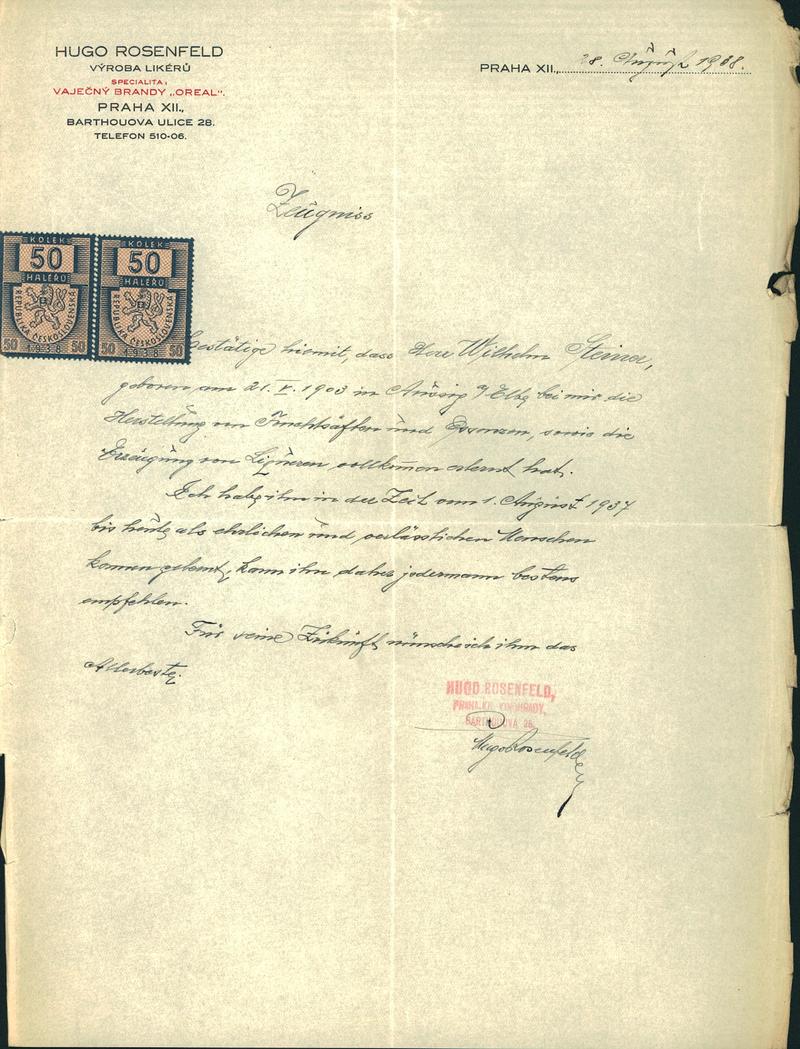 HUGO ROSENFELD
VÝROBA LIKÉRŮ
SPECIALITA:
VAJEČNÝ BRANDY „OREAL“.
PRAHA XII.,
BARTHOUOVA ULICE 28.
TELEFON 510-06.
PRAHA XII., 28. August 1938.
Zeugniss
KOLEK
50
HALÉŘŮ
REPUBLIKA ČESKOSLOVENSKÁ
50 1938 50
KOLEK
50
HALÉŘŮ
REPUBLIKA ČESKOSLOVENSKÁ
50 1938 50
bestätige hiemit, dass Herr Wilhelm Steiner,
geboren am 21. V. 1903 in Aussig a/Elbe bei mir die
Herstellung von Fruchtsäften und Essenzen, sowie die
Erzeugung von Liqueren vollkom̅en erlernt hat.
Ich habe ihn in der Zeit vom 1. August 1937
bis heute als ehrlichen und verlässlichen Menschen
kennen gelernt, kann ihn daher jedermann bestens
empfehlen.
Für seine Zukunft wünsche ich ihm das
Allerbeste.
HUGO ROSENFELD,
PRAHA XII. VINOHRADY,
BARTHOUOVA 28.
Hugo Rosenfeld